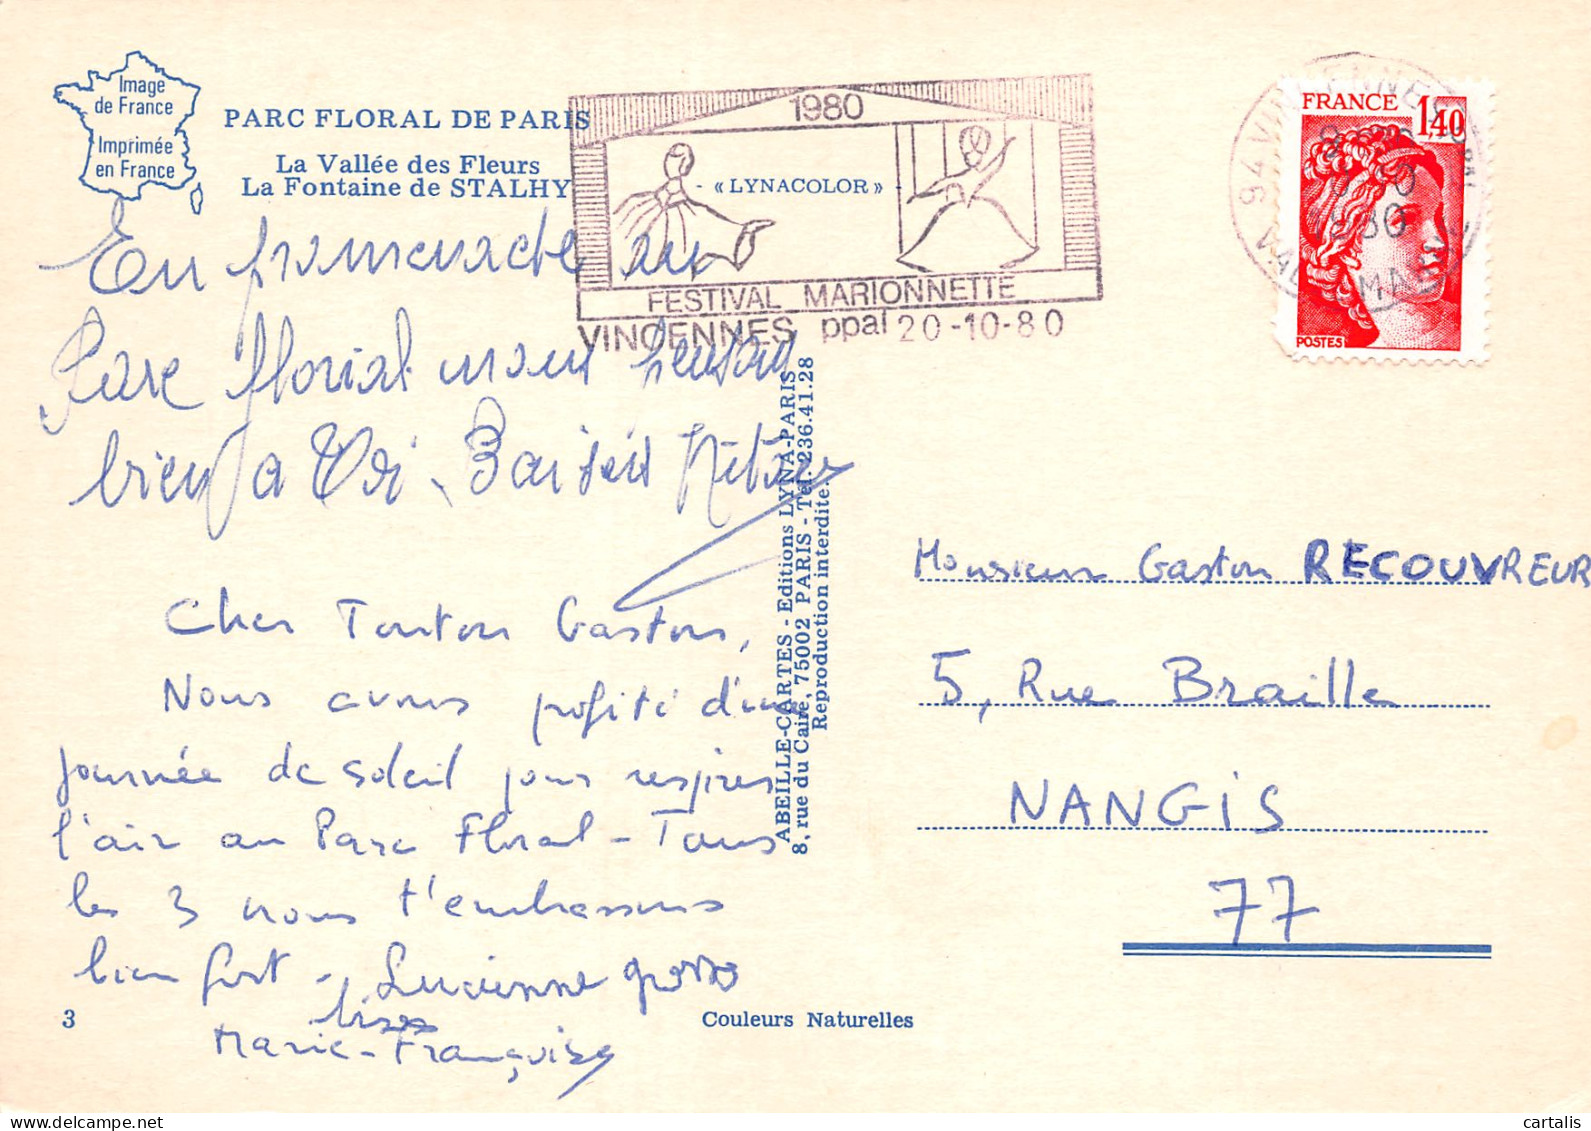 Image
de France
Imprimée
en France
PARC FLORAL DE PARIS
La Vallée des Fleurs
La Fontaine de STALHY
1980
- « LYNACOLOR » -
FESTIVAL MARIONNETTE
VINCENNES ppal 20-10-80
94 VINCENNES
VAL MARNE
FRANCE
1,40
POSTES
En promenade au
Parc florial nous pensons
bien a Toi. Baisers
Cher Tonton Gaston,
Nous avons profité d'une
journée de soleil pour respirer
l'air au Parc Floral - Tous
les 3 nous t'embrassons
bien fort - Lucienne gross
bises
Marie-Françoise
3
Couleurs Naturelles
ABEILLE-CARTES - Editions LYNA-PARIS
8, rue du Caire, 75002 PARIS - Tél. 236.41.28
Reproduction interdite.
Monsieur Gaston RECOUVREUR
5, Rue Braille
NANGIS
77
cartalis